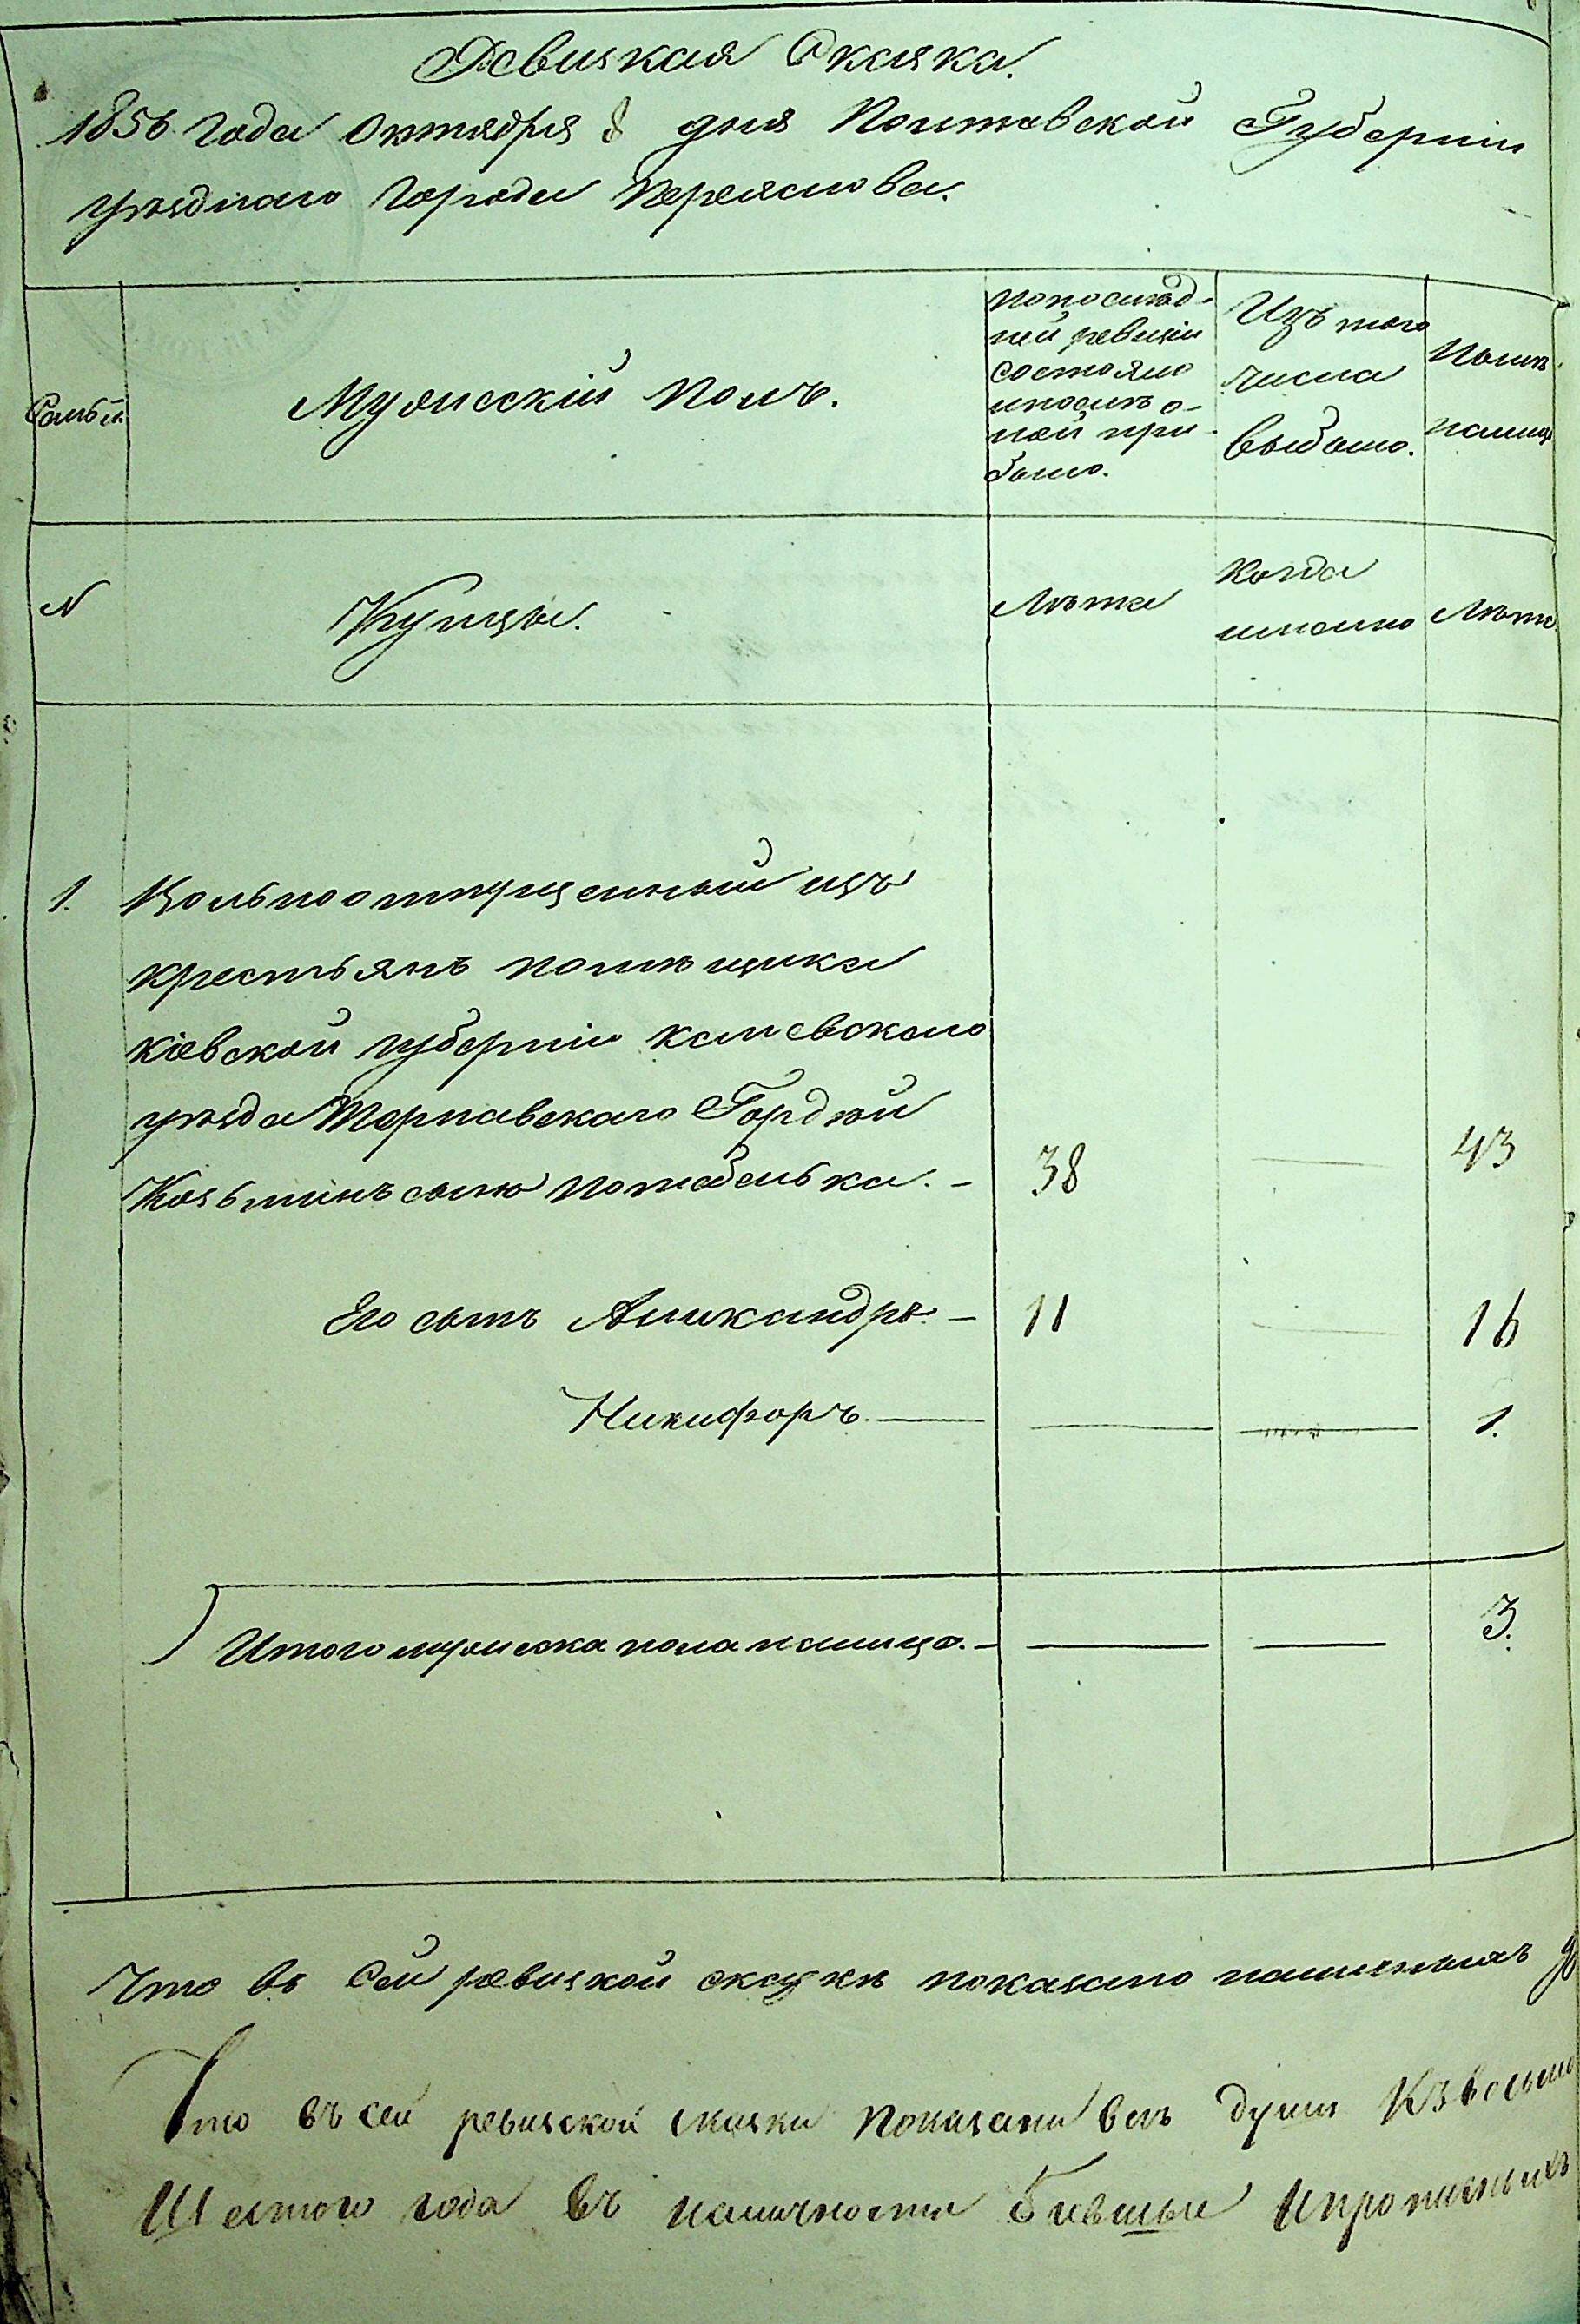 Ревизкая Сказка.
1856 года Октября 8 дня Полтавской Губерніи
уѣзднаго города Переяслова.
Семьи. Мужескій полъ.
По послѣд-
ней ревизіи
состояло
и послѣ о-
ной при-
было.
Изъ того
числа
выбыло.
Нынѣ
налицо
N Купцы. Лѣта
Когда
именно
Лѣта
1. Вольноотпущенный изъ
крестьянъ помѣщика
Кіевской губерніи Каневскаго
уѣзда Тернавскаго Гордѣй
Козьминъ сынъ — 38 — 43
Его сынъ Александръ — 11 — 16
Никифоръ — — — 1.
Итого мужеска пола налицо. — — — 3.
Что въ сей ревизкой сказкѣ показано наличныхъ
Что въ сей ревизской сказки показани всѣ души
Шестого года въ наличности бывшые и прописныхъ